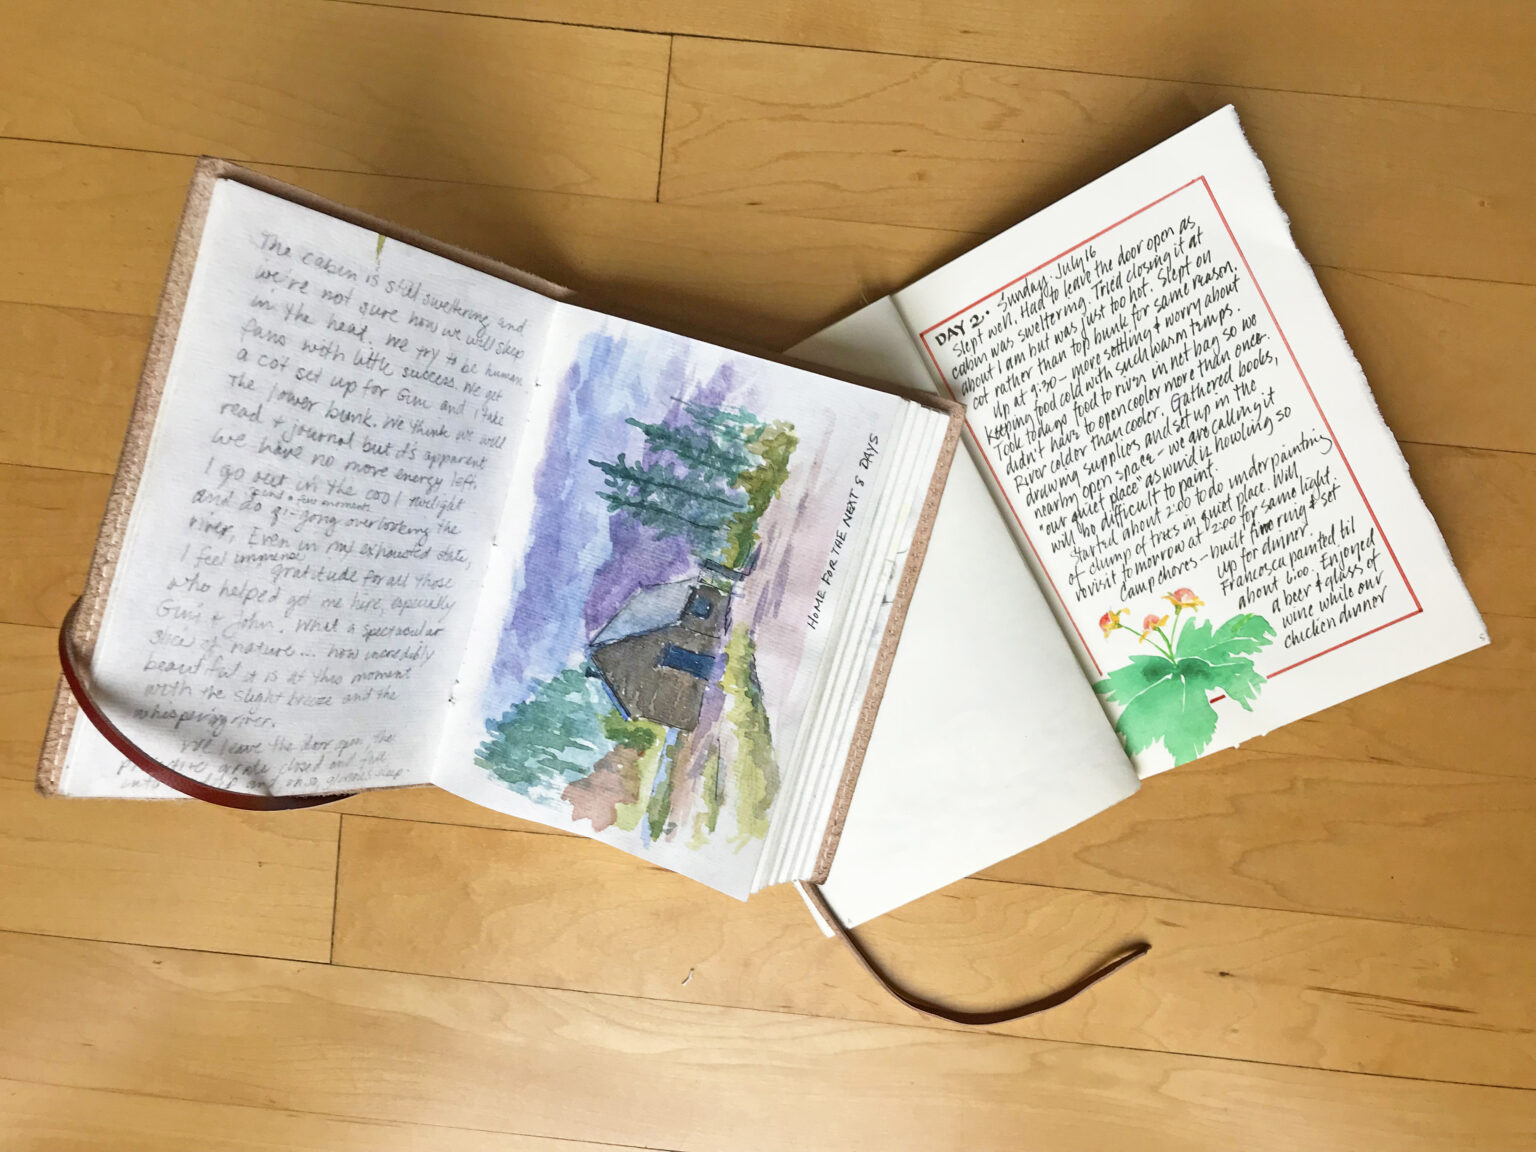 The cabin is still sweltering and
we're not sure how we will sleep
in the heat. We try to be human
fans with little success. We get
a cot set up for Gini and I take
the lower bunk. We think we will
read + journal but it's apparent
we have no more energy left.
I go out in the cool twilight
and do a few moments
qi-gong overlooking the
river. Even in my exhausted state,
I feel immense
gratitude for all those
who helped get me here, especially
Gini + John. What a spectacular
slice of nature... how incredibly
beautiful it is at this moment
with the slight breeze and the
whispering river.
We leave the door open, the
grate closed and fall
into and sleep.
HOME FOR THE NEXT 5 DAYS
DAY 2. Sunday. July 16
Slept well. Had to leave the door open as
cabin was sweltering. Tried closing it at
about 1 am but was just too hot. Slept on
cot rather than top bunk for same reason.
Up at 9:30 – more settling & worry about
keeping food cold with such warm temps.
Took todays food to river in net bag so we
didn't have to open cooler more than once.
River colder than cooler. Gathered books,
drawing supplies and set up in the
nearby open space – we are calling it
"our quiet place" as wind is howling so
will be difficult to paint.
Started about 2:00 to do underpainting
of clump of trees in quiet place. Will
revisit tomorrow at 2:00 for same light.
Camp chores – built fire ring & set
up for dinner.
Francesca painted til
about 6:00. Enjoyed
a beer & glass of
wine while our
chicken dinner